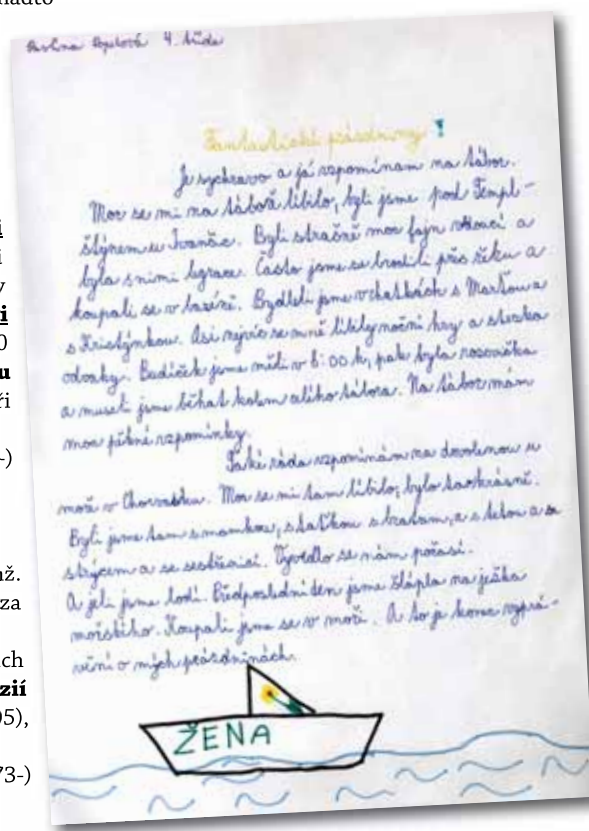 nadto
Pavlína 4. třída
Fantastické prázdniny!
Je sychravo a já vzpomínam na tábor.
Moc se mi na táboře líbilo, byli jsme pod Templ-
štýnem u Ivančic. Byli strašně moc fajn vedoucí a
byla s nimi legrace. Často jsme se brodili přes řeku a
koupali se v bazéně. Bydleli jsme v chatkách s Marťou a
s Kristýnkou. Asi nejvíc se mně líbily noční hry a stezka
odvahy. Budíček jsme měli v 8:00 h, pak byla rozcvička
a museli jsme běhat kolem celého tábora. Na tábor mám
moc pěkné vzpomínky.
Také ráda vzpomínám na dovolenou u
moře v Chorvatsku. Moc se mi tam líbilo, bylo tam krásně.
Byli jsme tam s mamkou, s taťkou s bratam, a s tetou a se
strýcem a se sestřenicí. Vyvedlo se nám počasí.
A jeli jsme lodí. Předposlední den jsme šlápla na ježka
mořského. Koupali jsme se v moři. A to je konec vyprá-
vění o mých prázdninách.
ŽENA
i
i
y
i
0
u
ři
-)
nž.
za
ch
zií
95),
73-)